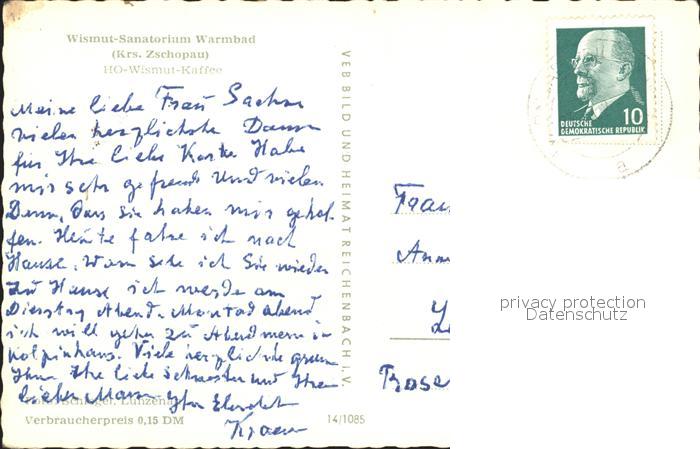 Wismut-Sanatorium Warmbad
(Krs. Zschopau)
HO-Wismut-Kaffee
Meine liebe Frau Sachse
vielen herzlichste Dank
für Ihre liebe Karte Habe
mir sehr gefreut Und vielen
Dank, das sie haben mir gehol-
fen. Heute fahre ich nach
Hause. Wan sehe ich Sie wieder
zu Hause ich werde am
Dienstag Abend. Montag abend
ich will gehen zu Abend in
Kolpinhaus. Viele herzliche
Ihre liebe Schwester und Ihre
lieben Mann
Verbraucherpreis 0,15 DM
14/1085
VEB BILD UND HEIMAT REICHENBACH I. V.
10
DEUTSCHE
DEMOKRATISCHE REPUBLIK
Frau
privacy protection
Datenschutz